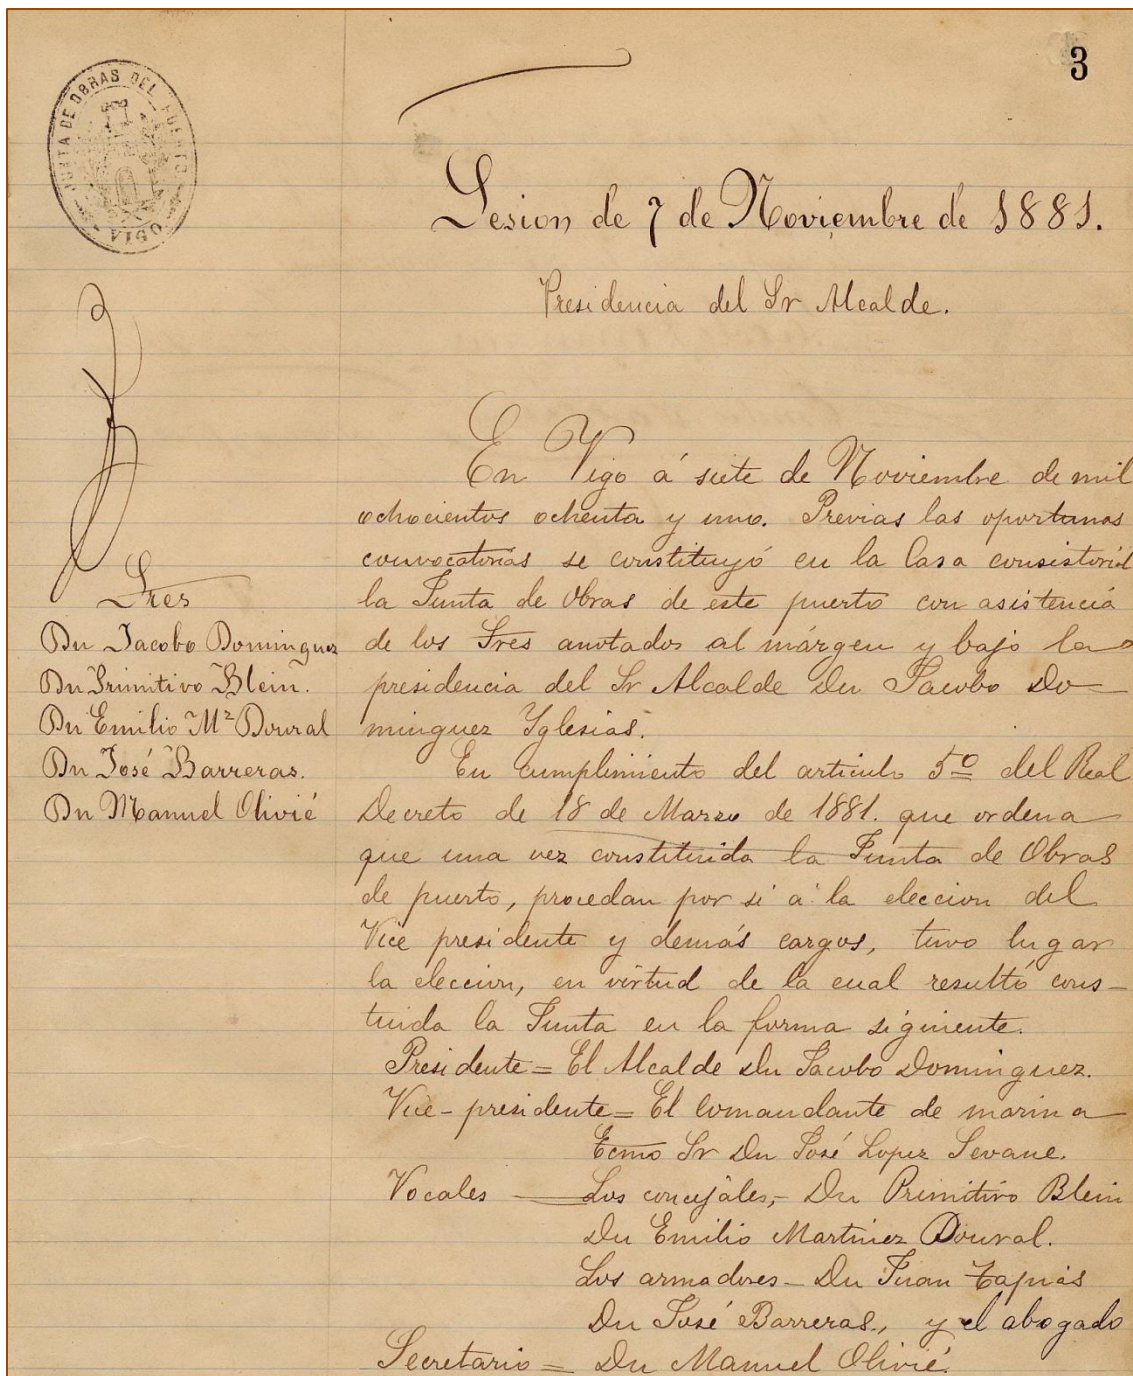 3
JUNTA DE OBRAS DEL PUERTO
Sesion de 7 de Noviembre de 1881.
Presidencia del Sr Alcalde.
Sres
Dn Jacobo Dominguez
Dn Primitivo Blein.
Dn Emilio Mz Doural
Dn José Barreras.
Dn Manuel Olivié
En Vigo á siete de Noviembre de mil
ochocientos ochenta y uno. Previas las oportunas
convocatorias se constituyó en la Casa consistorial
la Junta de Obras de este puerto con asistencia
de los Sres anotados al márgen y bajo la
presidencia del Sr Alcalde Dn Jacobo Do-
minguez Yglesias.
En cumplimiento del articulo 5º del Real
Decreto de 18 de Marzo de 1881. que ordena
que una vez constituida la Junta de Obras
de puerto, procedan por si á la eleccion del
Vice presidente y demás cargos, tuvo lugar
la eleccion, en virtud de la cual resultó cons-
tuida la Junta en la forma siguiente.
Presidente = El Alcalde Dn Jacobo Dominguez.
Vice-presidente = El Comandante de marina
Ecmo Sr Dn José Lopez Sevane.
Vocales — Los concejáles,- Dn Primitivo Blein
Dn Emilio Martinez Doural.
Los armadores - Dn Juan Tapias
Dn José Barreras., y el abogado
Secretario = Dn Manuel Olivié.